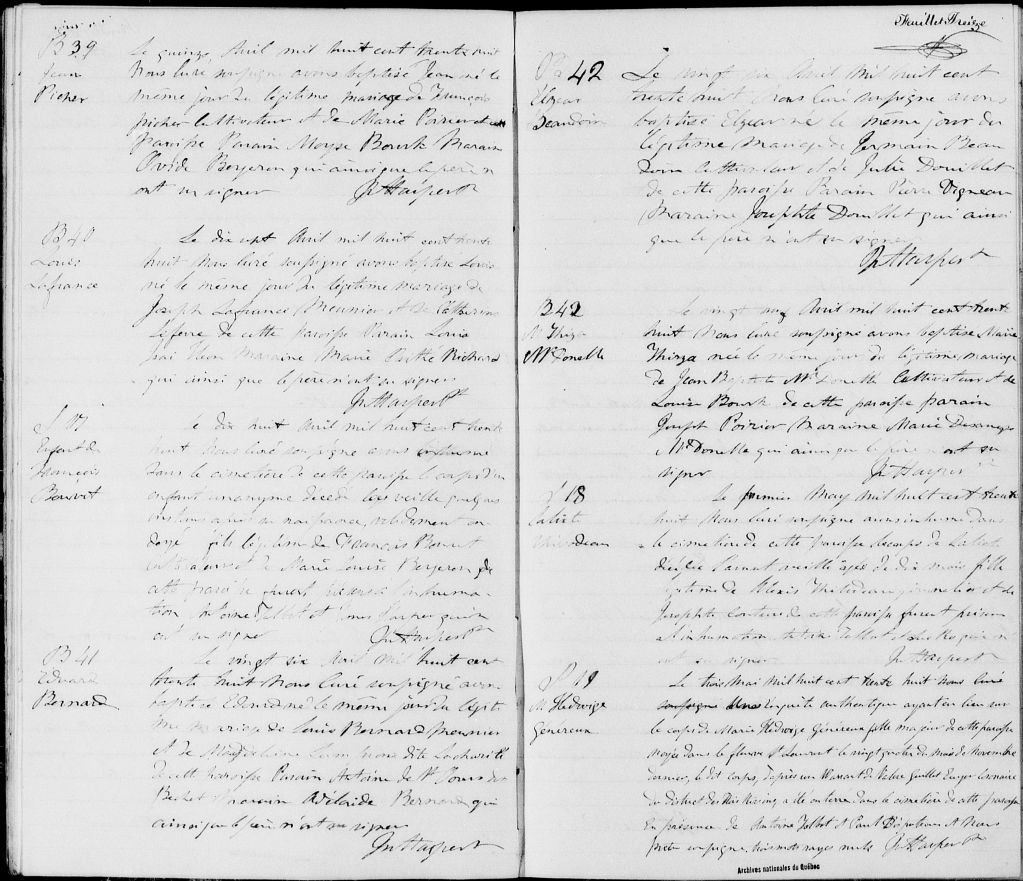 B 39
Jean
Picher
Le quinze Avril mil huit cent trente huit
Nous Curé soussigné avons baptisé Jean né le
même jour du légitime mariage de François
Picher Cultivateur et de Marie Poirier de cette
Paroisse Parain Moyse Bourk Maraine
Bergeron qui ainsi que le père n
ont su signer Jn Harper Ptre
B 40
Louis
Lafrance
Le dix sept Avril mil huit cent trente
huit Nous Curé soussigné avons baptisé Louis
né le même jour du légitime mariage de
Joseph Lafrance Meunier et de Catherine
Lefevre de cette Paroisse Parain Louis
Maraine Marie Richard
qui ainsi que le père n'ont su signer
Jn Harper Ptre
S 17
Enfant de
François
Le dix huit Avril mil huit cent trente
huit Nous Curé soussigné avons inhumé
dans le cimetière de cette paroisse le corps d'un
enfant anonyme décédé la veille quelques
instans après sa naissance, validement on
doyé fils légitime de François
et de Marie Louise Bergeron de
cette paroisse furent présens à l'inhuma
tion Antoine Talbot et qui n
ont su signer Jn Harper Ptre
B 41
Edouard
Bernard
Le vingt six Avril mil huit cent
trente huit Nous Curé soussigné avons
baptisé Edouard né le même jour du légiti
me mariage de Louis Bernard Meunier
et de dite Lacharité
de cette Paroisse Parain Antoine de St Louis
Maraine Adélaide Bernard qui
ainsi que le père n'ont su signer
Jn Harper Ptre
Feuillet Treize
B 42
Elzear
Beaudoin
Le vingt six Avril mil huit cent
trente huit Nous Curé soussigné avons
baptisé Elzear né le même jour du
légitime mariage de Germain Beau
doin Cultivateur et de Julie Douillet
de cette paroisse Parain Pierre Vigneau
Maraine Josephte Douillet qui ainsi
que le père n'ont su signer
Jn Harper Ptre
B 42
M Thirza
McDonelle
Le vingt Avril mil huit cent trente
huit Nous Curé soussigné avons baptisé Marie
Thirza née le même jour du légitime mariage
de Jean Baptiste Mc Donelle Cultivateur et de
Louise Bourk de cette paroisse parain
Joseph Poirier Maraine Marie Desanges
Mc Donelle qui ainsi que le père n ont su
signer Jn Harper Ptre
S 18
Le premier May mil huit cent trente
huit Nous Curé soussigné avons inhumé dans
le cimetière de cette paroisse le corps de
décédée l'avant veille agée de dix mois fille
légitime de Alexis et de
Josephte de cette paroisse furent présens
à l'inhumation Antoine Talbot qui n
ont su signer Jn Harper Ptre
S 19
M. Hedwige
Généreux
Le trois Mai mil huit cent trente huit Nous Curé
soussigné Une Enquête authentique ayant eu lieu sur
le corps de Marie Hedwige Généreux fille majeure de cette paroisse
noyée dans le fleuve St Laurent le vingt quatre du mois de Novembre
dernier, le dit corps, d'après un Warrant de Valère Guillet Ecuyer Coronaire
du district des Trois Rivières, a été enterré dans le cimetière de cette paroisse
En présence de Antoine Talbot et Paul et Nous
Prêtre soussigné, trois mots rayés nuls Jn Harper Ptre
Archives nationales du Québec